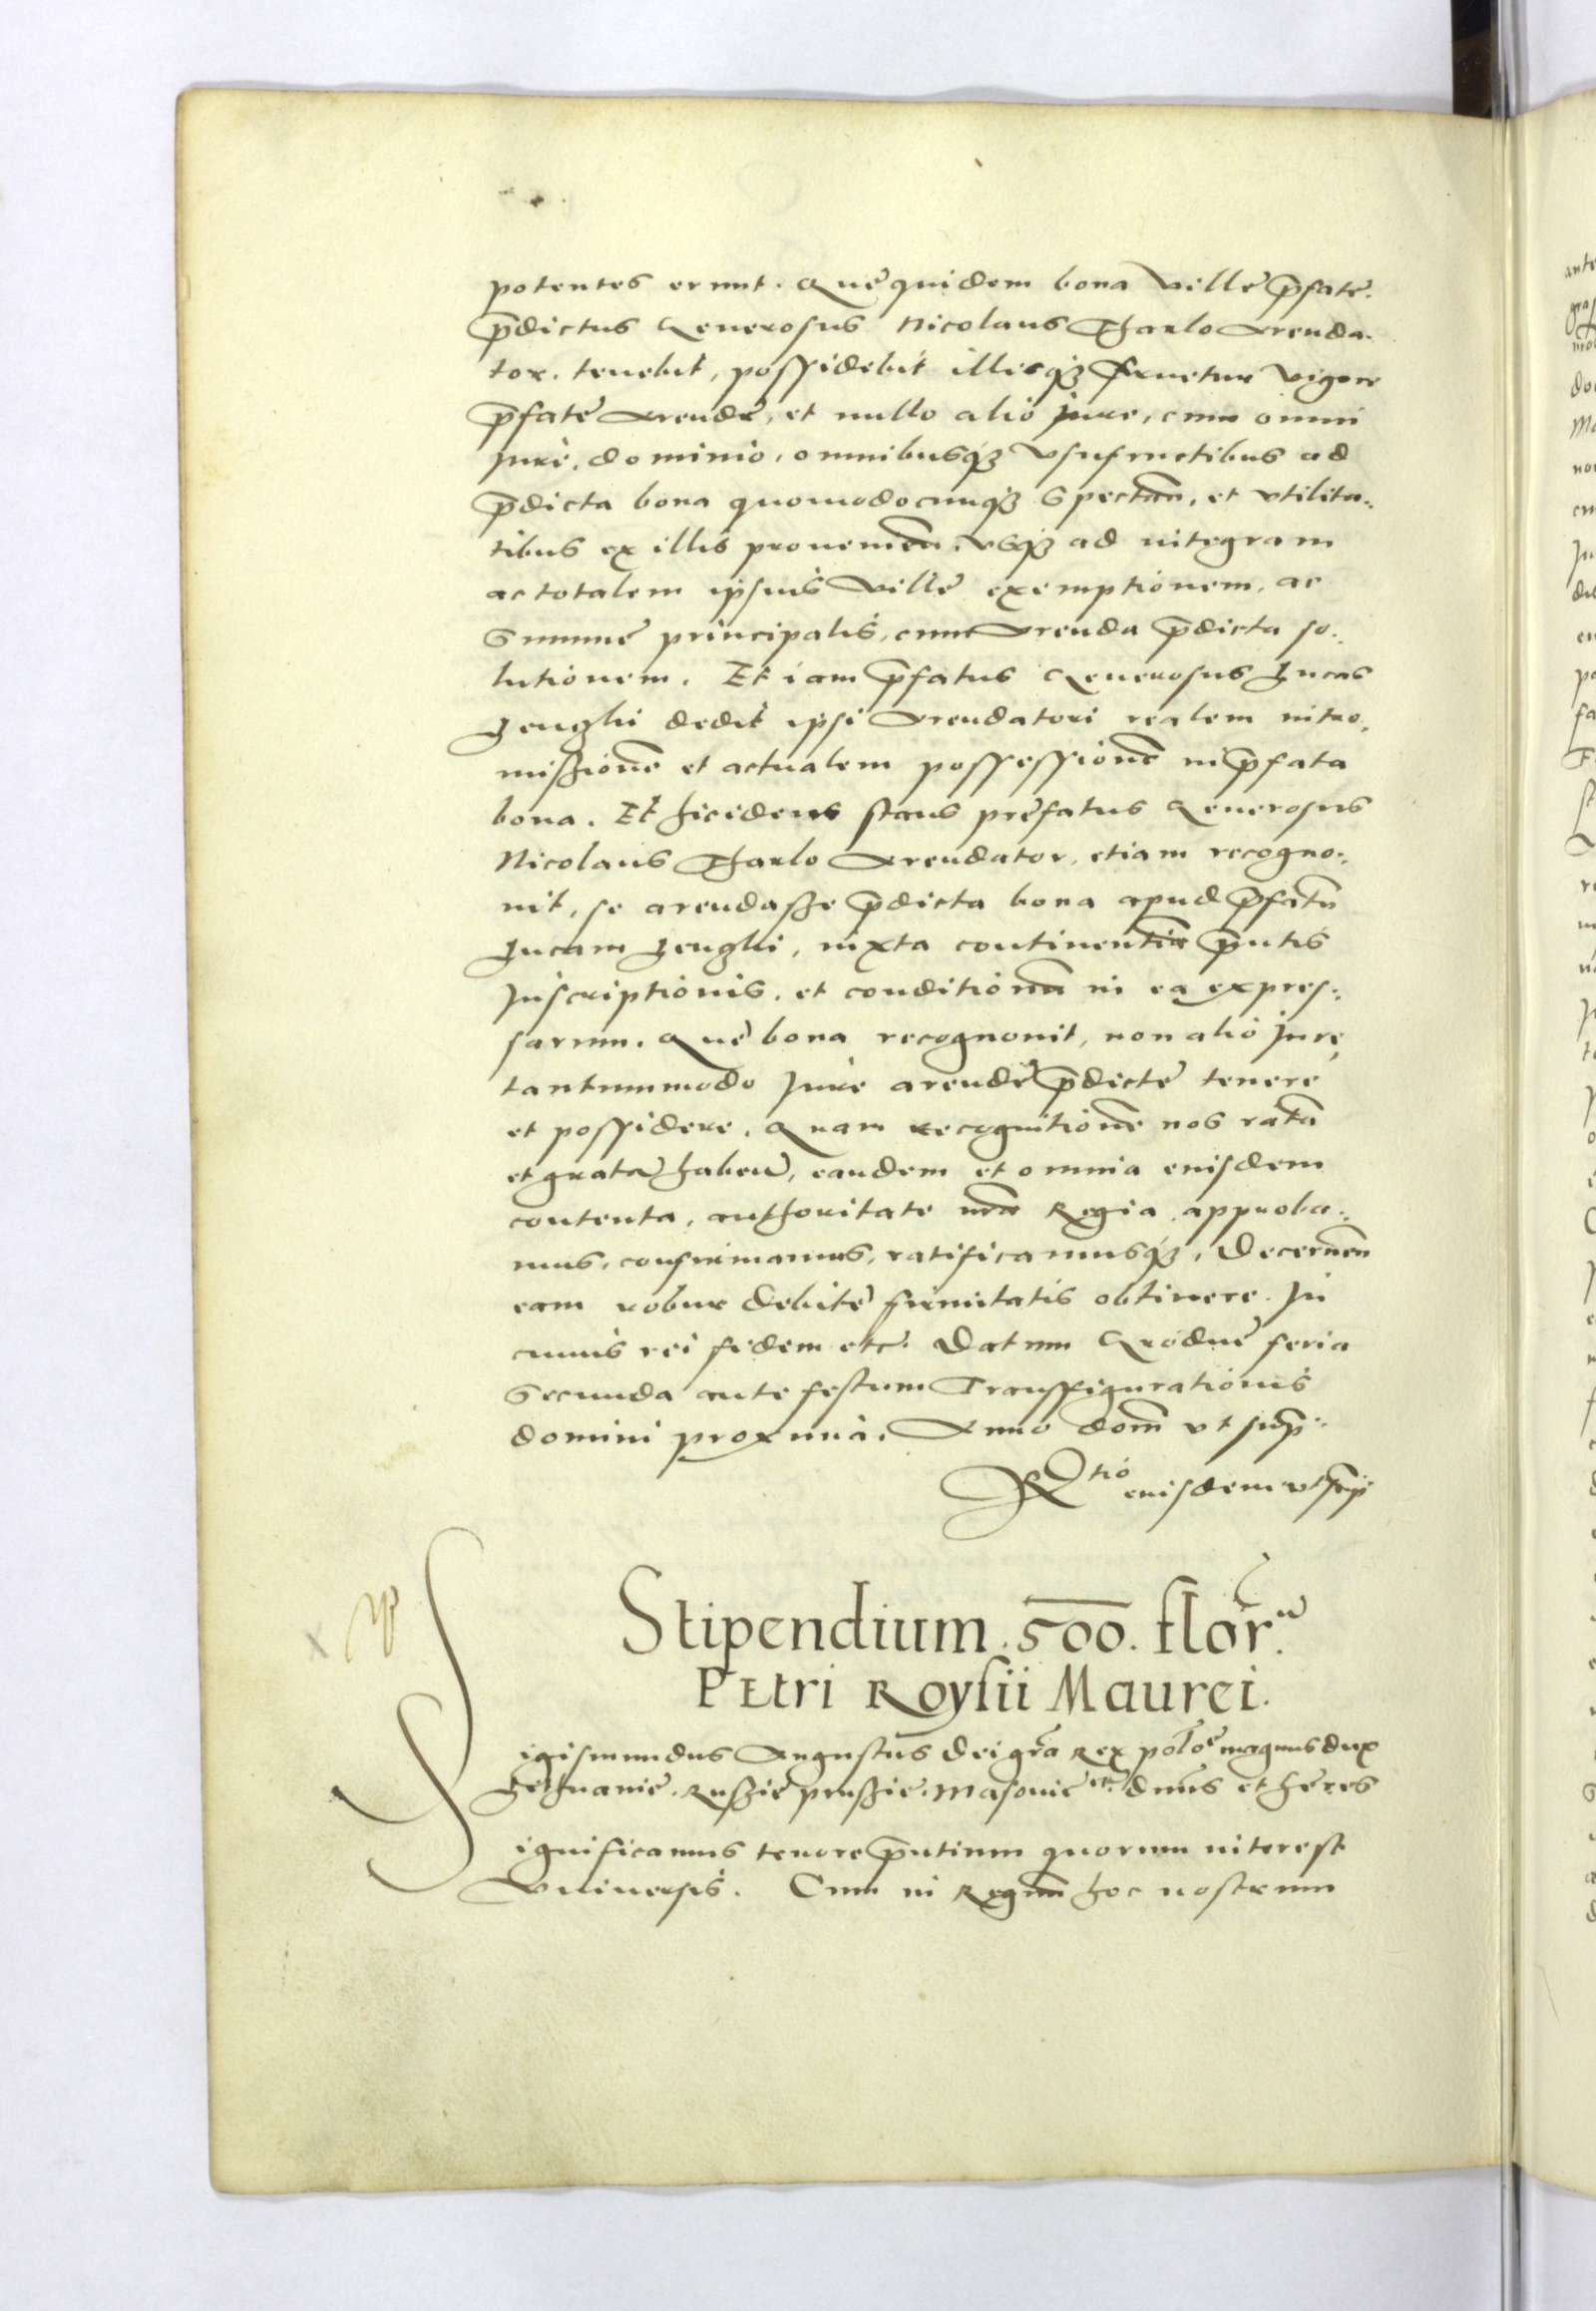 potentes erunt. Que quidem bona Ville p̄fate.
p̄dictus Generosus Nicolaus Tharlo Arenda-
tor. tenebit, possidebit illisq₃ fruetur vigore
p̄fate Arende, et nullo alio jure, cum omni
jure, dominio, omnibusq₃ Vsufructibus ad
p̄dicta bona quomodocunq₃ Spectan̄, et vtilita-
tibus ex illis prouenien̄. vsq₃ ad integram
ac totalem ipsius Ville exemptionem, ac
Summe principalis, cum Arenda p̄dicta so-
lutionem. Et iam p̄fatus Generosus Lucas
Lenghi dedit ipsi Arendatori realem intro-
mißionē et actualem possessionē in p̄fata
bona. Et hic idem stans prefatus Generosus
Nicolaus Tharlo Arendator, etiam recogno-
uit, se arendaße p̄dicta bona apud p̄fatū
Lucam Lenghi, iuxta continentiā p̄ntis
Inscriptionis, et conditionū in ea expres-
sarum. Que bona recognouit, non alio jure,
tantummodo Jure arende p̄dicte tenere
et possidere. Quam recognitionē nos ratā
et gratā haben̄, eandem et omnia eiusdem
contenta, authoritate nrā Regia approba-
mus, confirmamus, ratificamusq₃. Decernen̄
eam robur debite firmitatis obtinere. In
cuius rei fidem etc. Datum Grodne feria
Secunda ante festum Transfigurationis
domini proxima. Anno Dom̄ vt sup̄.
Rtio eiusdem vt sup̄
Stipendium . 500. flor.
Petri Roysii Maurei.
Sigismundus Augustus Dei gr̄a Rex poloē magnus dux
Lithuanie. Rußie prußie. Masouie etc. dn̄us et heres
Significamus tenore p̄ntium quorum interest
Vniuersis. Cum in Regnū hoc nostrum